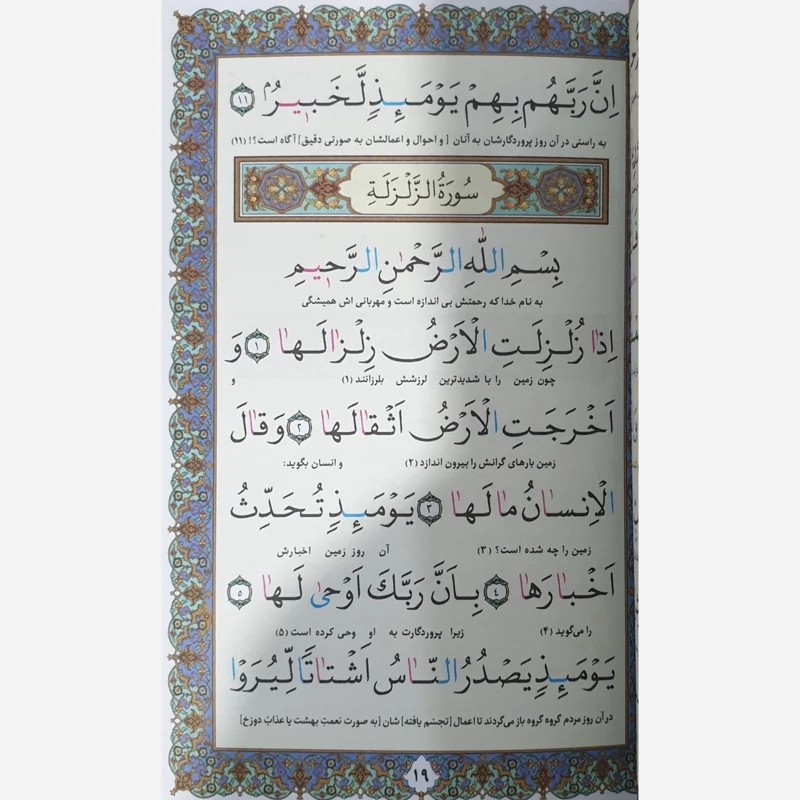 اِنَّ رَبَّهُم بِهِمْ يَوْمَئِذٍ لَّخَبِيرٌ ۱۱
به راستی در آن روز پروردگارشان به آنان [و احوال و اعمالشان به صورتی دقیق] آگاه است؟! (۱۱)
سُورَةُ الزَّلْزَلَةِ
بِسْمِ اللّٰهِ الرَّحْمٰنِ الرَّحِيمِ
به نام خدا که رحمتش بی اندازه است و مهربانی اش همیشگی
اِذَا زُلْزِلَتِ الْاَرْضُ زِلْزَالَهَا ۱ وَ
چون زمین را با شدیدترین لرزشش بلرزانند (۱) و
اَخْرَجَتِ الْاَرْضُ اَثْقَالَهَا ۲ وَ قَالَ
زمین بارهای گرانش را بیرون اندازد (۲) و انسان بگوید:
الْاِنسَانُ مَا لَهَا ۳ يَوْمَئِذٍ تُحَدِّثُ
زمین را چه شده است؟ (۳) آن روز زمین اخبارش
اَخْبَارَهَا ٤ بِاَنَّ رَبَّكَ اَوْحىٰ لَهَا ۵
را می‌گوید (۴) زیرا پروردگارت به او وحی کرده است (۵)
يَوْمَئِذٍ يَصْدُرُ النَّاسُ اَشْتَاتًا لِّيُرَوْا
در آن روز مردم گروه گروه باز می‌گردند تا اعمال [تجسّم یافته] شان [به صورت نعمتِ بهشت یا عذاب دوزخ]
۱۹